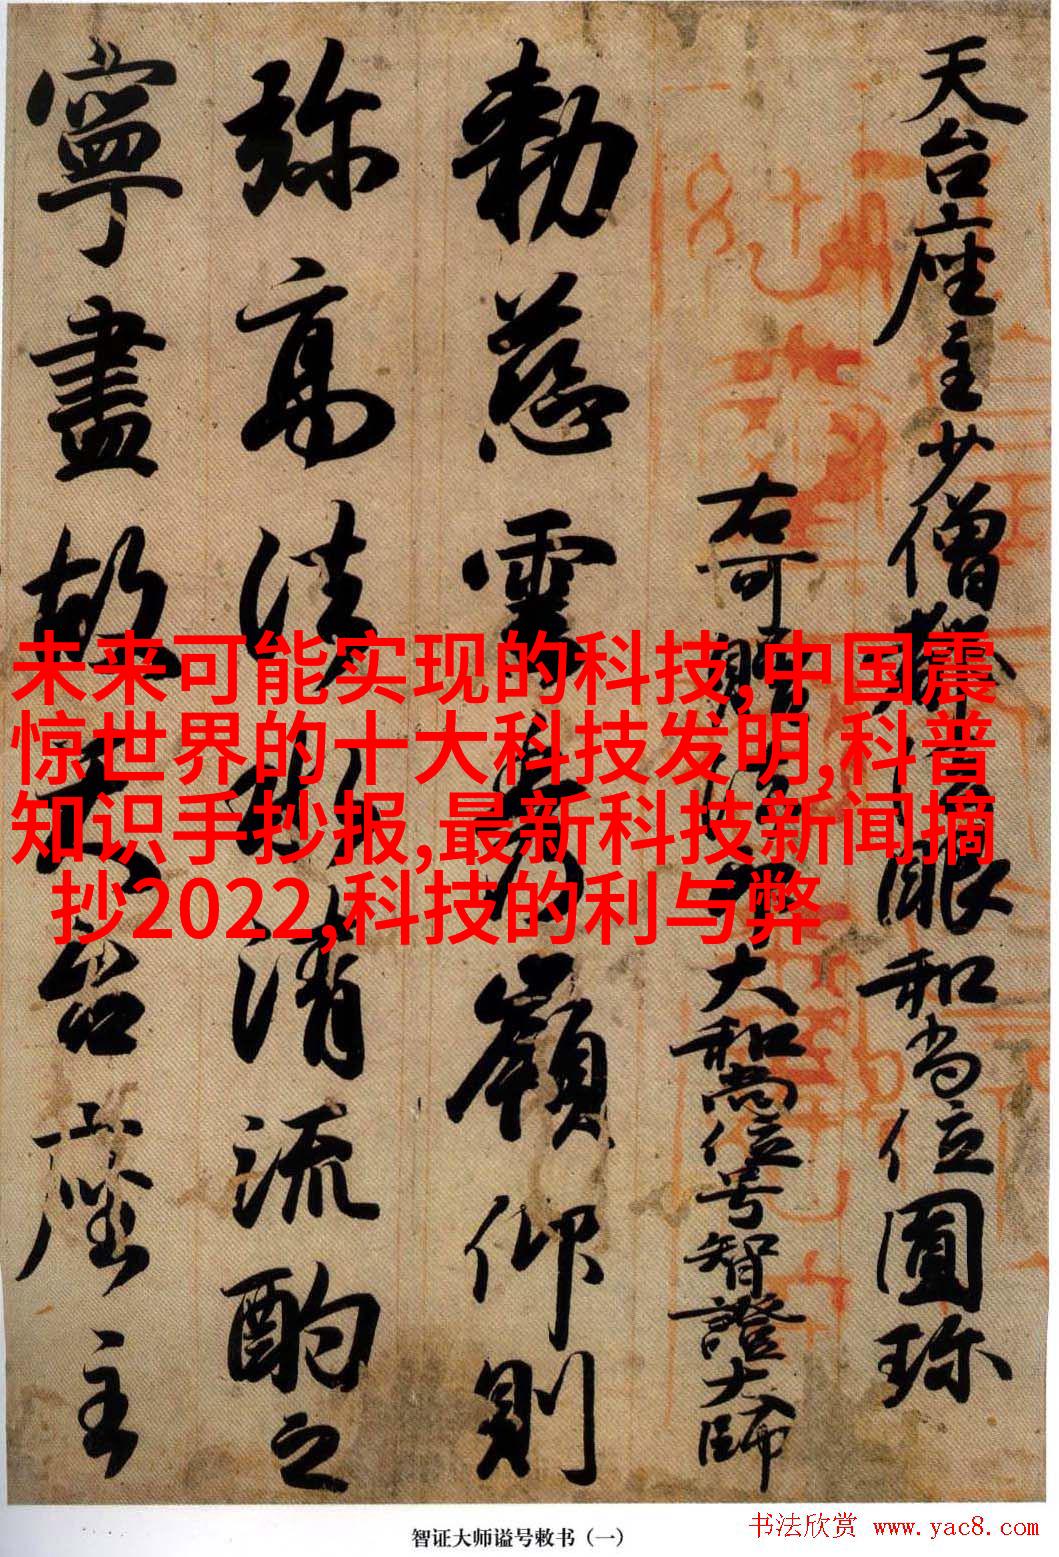 天台座主少僧都法眼和尚位圓珎
右可贈法印大和尚位号智證大師
勅慈雲秀嶺仰則
弥高法水清流酌之
寧盡故天台座主
未来可能实现的科技,中国震
惊世界的十大科技发明,科普
知识手抄报,最新科技新闻摘
抄2022,科技的利与弊
智证大师谥号敕书（一）
书法欣赏 www.yac8.com